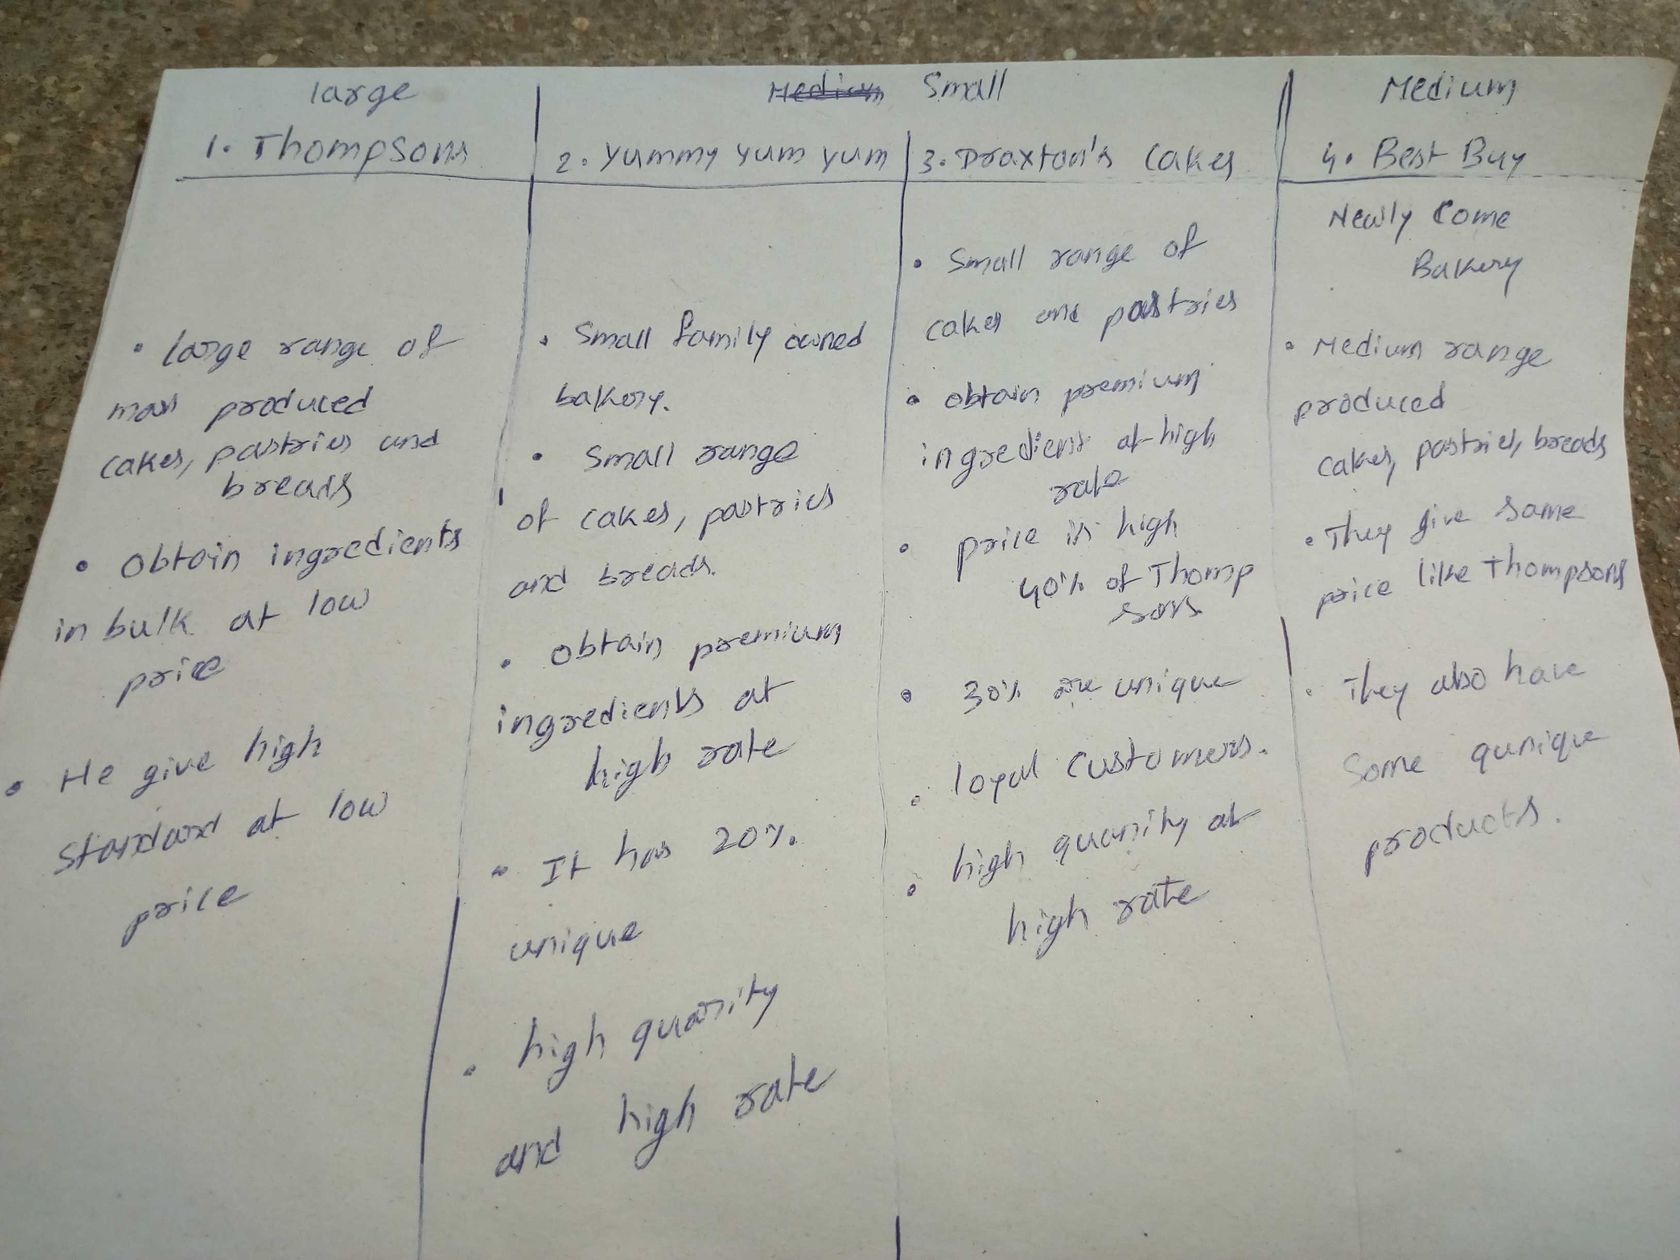 large
1. Thompsons
• large range of
mass produced
cakes, pastries and
breads
• Obtain ingredients
in bulk at low
price
• He give high
standard at low
price
Medium Small
2. Yummy yum yum
• Small family owned
bakery.
• Small range
of cakes, pastries
and breads.
• Obtain premium
ingredients at
high rate
• It has 20%.
unique
• high quanity
and high rate
3. Draxton's Cakes
• Small range of
cakes and pastries
• obtain premium
ingredient at high
rate
• price is high
40% of Thomp
sons
• 30% are unique
• loyal customers.
• high quanity at
high rate
Medium
4. Best Buy
Newly Come
Bakery
• Medium range
produced
cakes, pastries, breads
• They give same
price like Thompsons
• They also have
Some qunique
products.